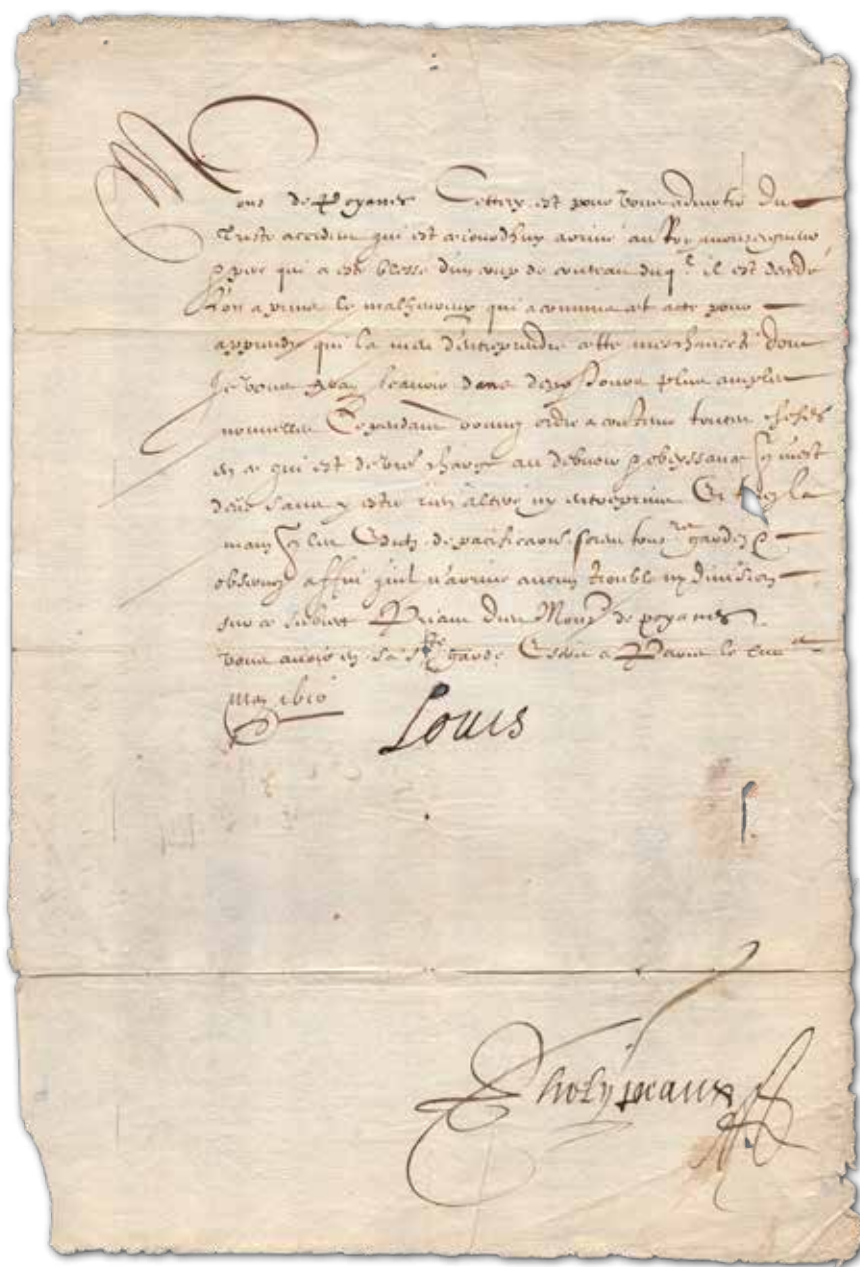 Mons de Poyanes Cettecy est pour vous advertir du
triste accident qui est ce jourdhuy arrivé au Roy monseigneur
& pere qui a esté blessé dun coup de couteau duql il est decedé
Lon a prins le malheureux qui a commis cet acte pour
apprendre qui la meu dentreprendre cette meschanceté dont
Je vous feray scavoir dans deux jours plus amples
nouvelles Cependant donnez ordre a contenir toutes choses
en ce qui est de vre charge au debvoir & obeyssance qui mest
deue sans y estre rien alteré ny entreprins Et tenez la
main que les Edictz de pacificaon soient tousrs gardez &
observez affin quil n'arrive aucun trouble ny division
sur ce subiect Priant dieu Monsr de poyanes
vous avoir en sa ste garde Escrit a Paris le
May 1610
Louis
Phelypeaux